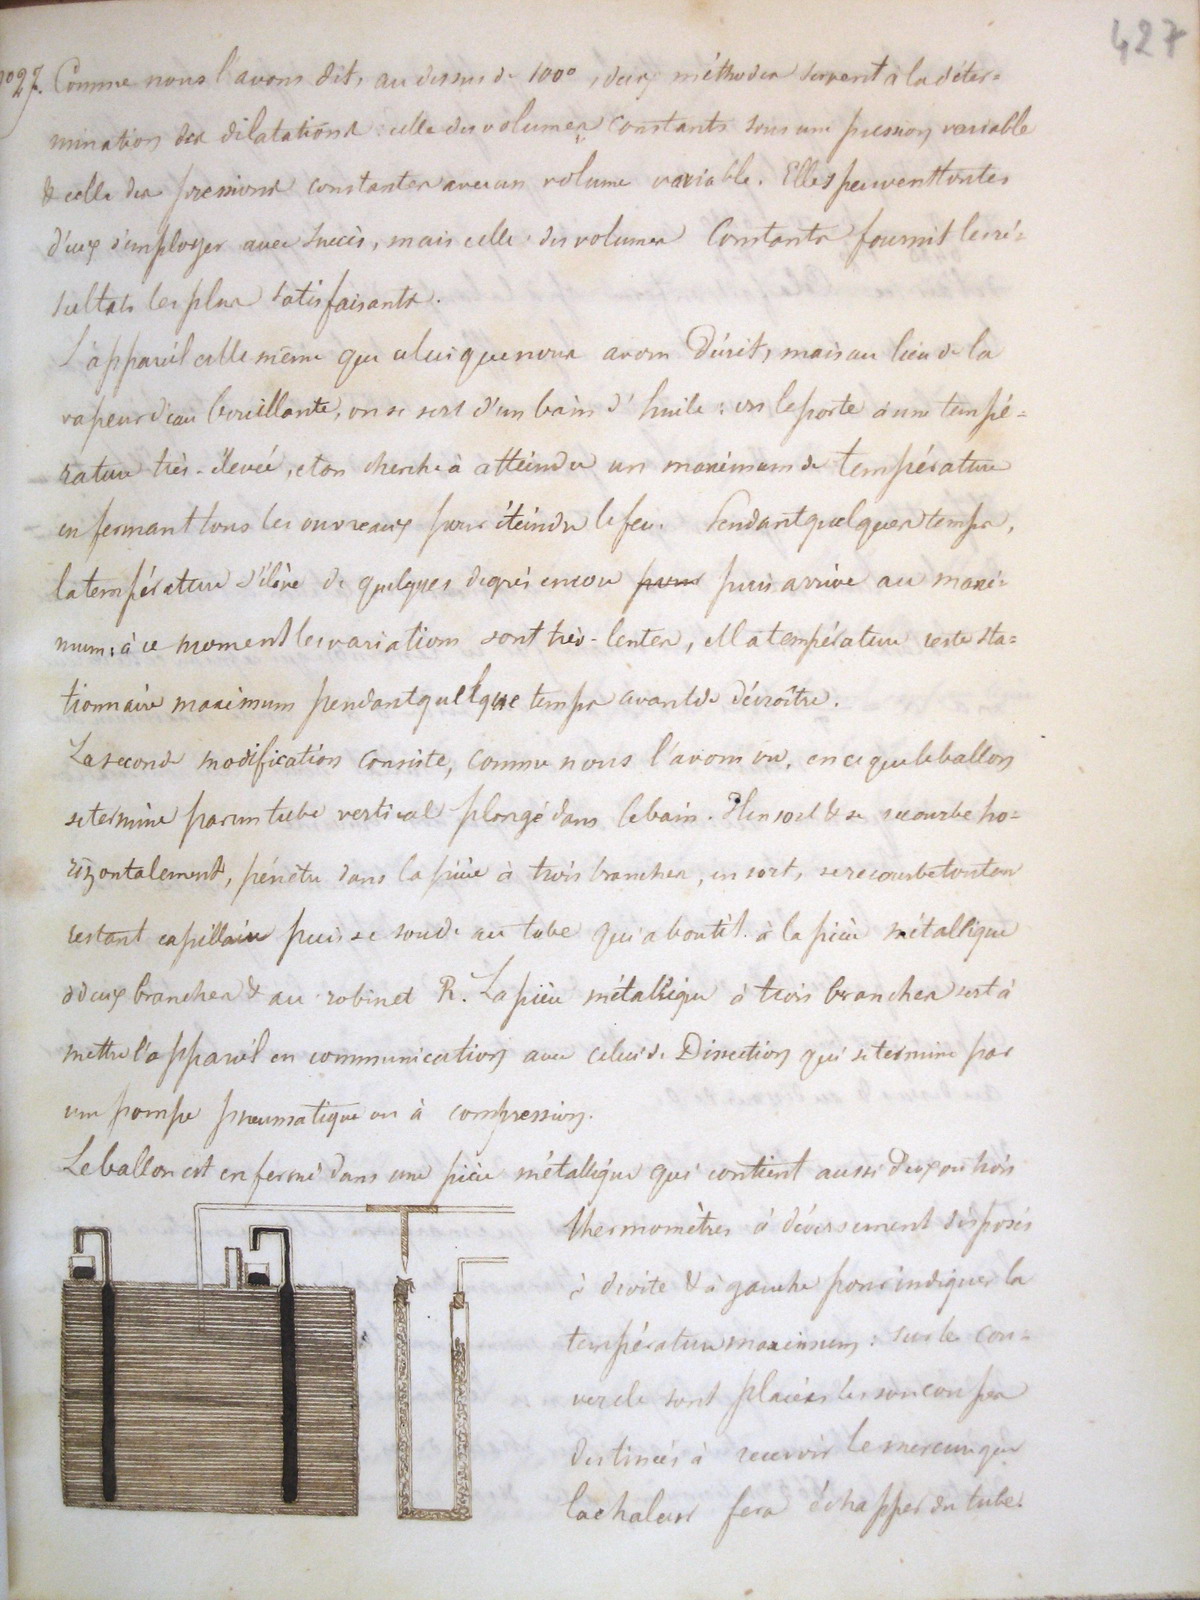 427
n° 27. Comme nous l'avons dit, au dessus de 100°, deux méthodes servent à la déter=
mination des dilatations : celle des volumes constants sous une pression variable
& celle des pressions constantes avec un volume variable. Elles peuvent toutes
d'eux s'employer avec succès, mais celle des volumes Constants fournit les ré=
sultats les plus satisfaisants.
L'appareil est le même que celui que nous avons Décrit, mais au lieu de la
vapeur d'eau bouillante, on se sert d'un bain d'huile : on le porte à une tempé=
rature très-élevée, et on cherche à atteindre un maximum de température
en fermant tous les ouvreaux pour éteindre le feu. Pendant quelques temps,
la température s'élève de quelques degrés encore pour puis arrive au maxi=
mum; à ce moment les variations sont très-lentes, et la température reste sta=
tionnaire maximum pendant quelque temps avant de décroître.
La seconde modification consiste, comme nous l'avons vu, en ce que le ballon
se termine par un tube vertical plongé dans le bain. Il en sort & se recourbe ho=
rizontalement, pénètre dans la pièce à trois branches, en sort, se recourbe tout en
restant capillaire puis se soude au tube qui aboutit à la pièce métallique
à deux branches & au robinet R. La pièce métallique à trois branches sert à
mettre l'appareil en communication avec celui de Dissection qui se termine par
une pompe pneumatique ou à compression.
Le ballon est enfermé dans une pièce métallique qui contient aussi deux ou trois
thermomètres à déversement disposés
à droite & à gauche pour indiquer la
température maximum : sur le cou=
vercle sont placées les soucoupes
destinées à recevoir le mercure que
la chaleur fera échapper du tube.